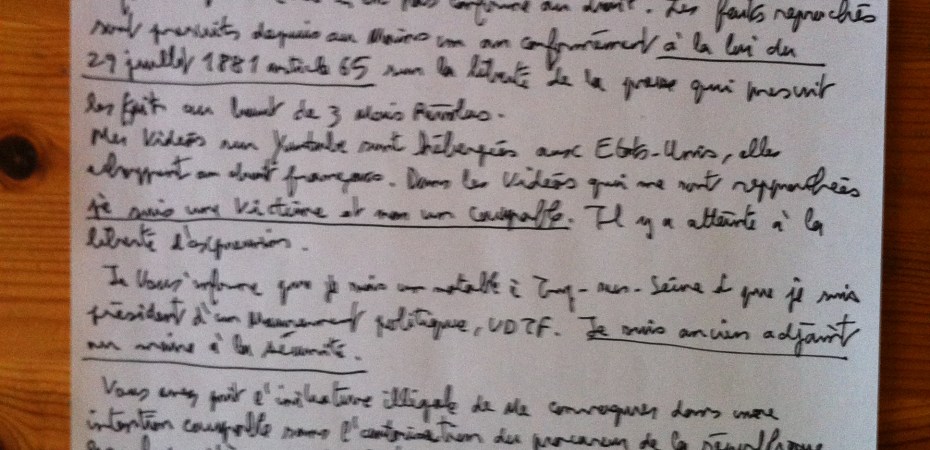 pas conforme au droit. Les faits reprochés
sont prescrits depuis au moins un an conformément à la loi du
29 juillet 1881 article 65 sur la liberté de la presse qui prescrit
les fait au bout de 3 mois Révolus.
Mes Vidéos sur Youtube sont hébergées aux Etats-Unis, elles
échappent au droit français. Dans les Vidéos qui me sont repprochées
je suis une Victime et non un coupable. Il y a atteinte à la
liberté d'expression.
Je Vous informe que je suis un notable à sur-Seine et que je suis
président d'un Mouvement politique, UDTF. Je suis ancien adjoint
au maire à la sécurité.
Vous avez prit l'initiative illégale de Me convoquer dans une
intention coupable sans l'autorisation du procureur de la République